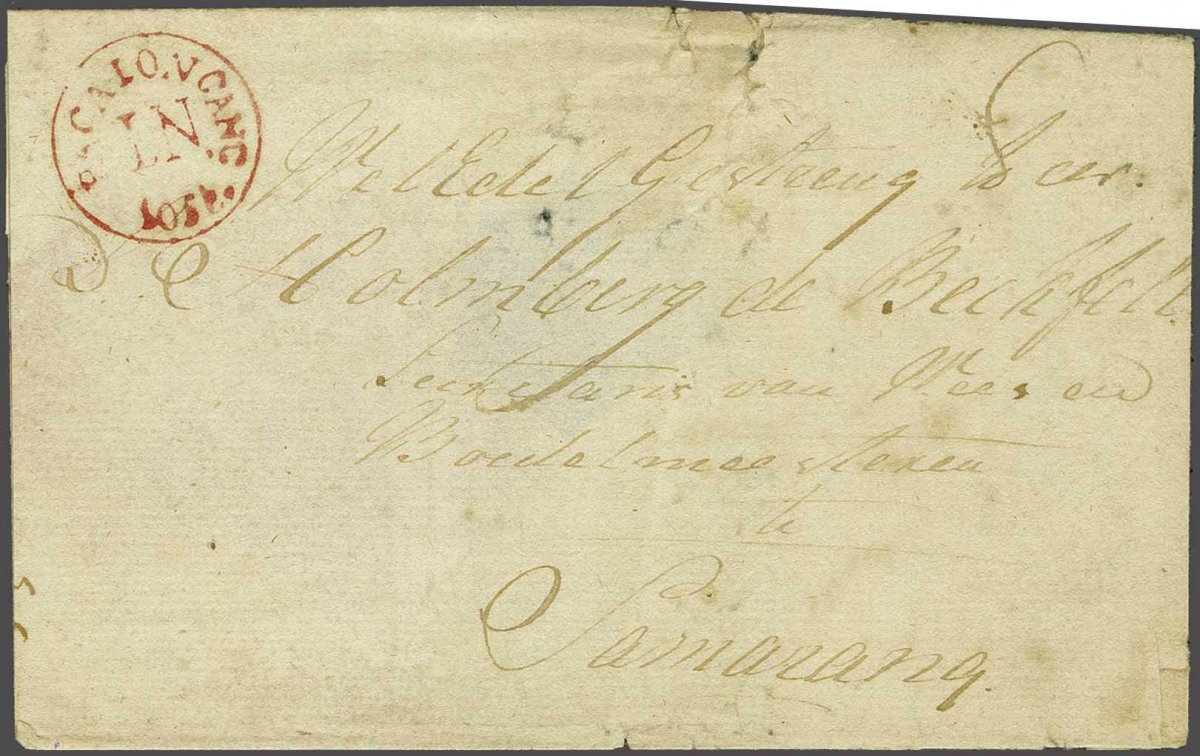 PACALONGANG
LN.
Wel Edel Gestreng Heer.
Holmberg de Beckfelt
Secretaris van Wees en
Boedelmeesteren
te
Samarang.